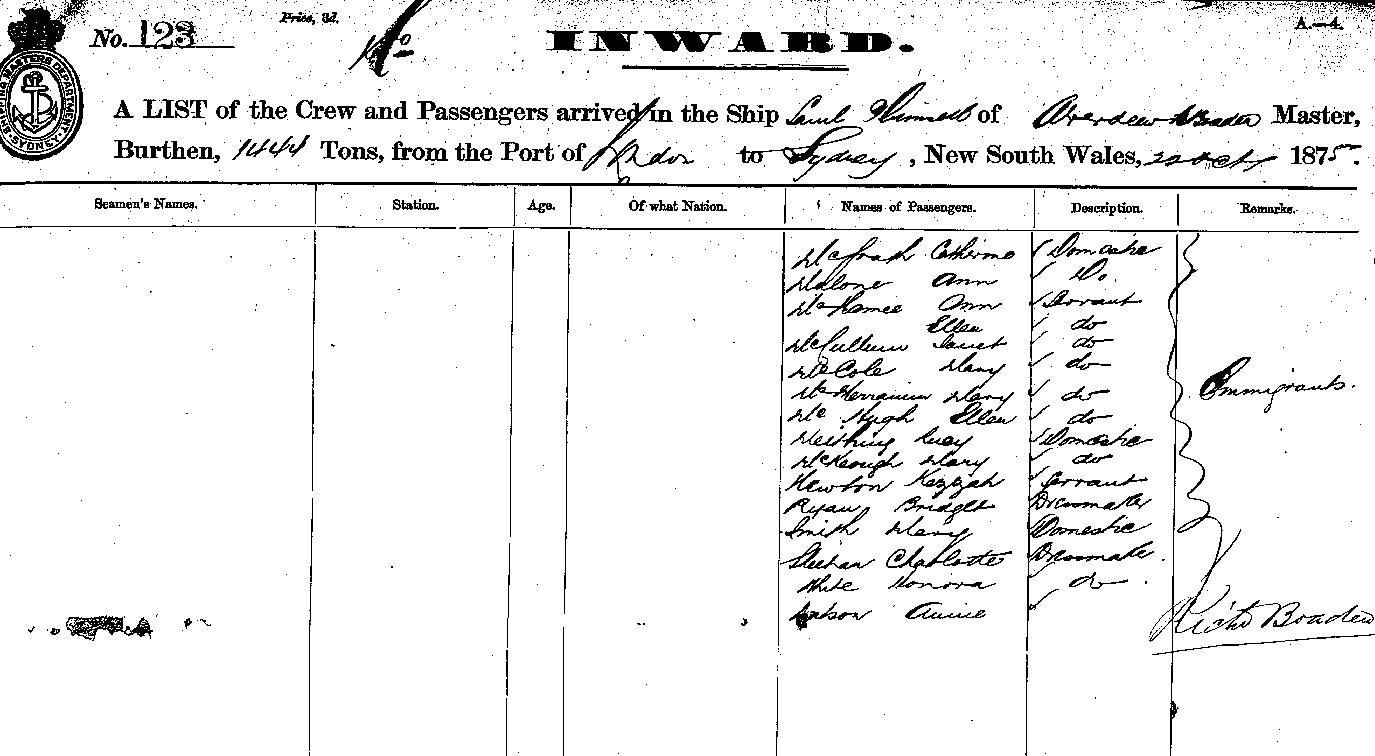 No. 123
Price, 3d.
INWARD.
A.—4.
SHIPPING MASTERS DEPARTMENT SYDNEY
A LIST of the Crew and Passengers arrived in the Ship of Master,
Burthen, 1444 Tons, from the Port of to Sydney, New South Wales, 22 Oct 1875.
Seamen's Names. Station. Age. Of what Nation. Names of Passengers. Description. Remarks.
McGrath Catherine Domestic
Malone Ann Do.
Ann Servant
Ellen do
McCullum Janet do
McCole Mary do
Mary do
McHugh Ellen do
Lucy Domestic
McKeough Mary do
Newton Kezijah Servant
Ryan Bridget Dressmaker
Smith Mary Domestic
Charlotte Dressmaker.
White Honora do.
Watson Annie
Immigrants.
Richd Boaden